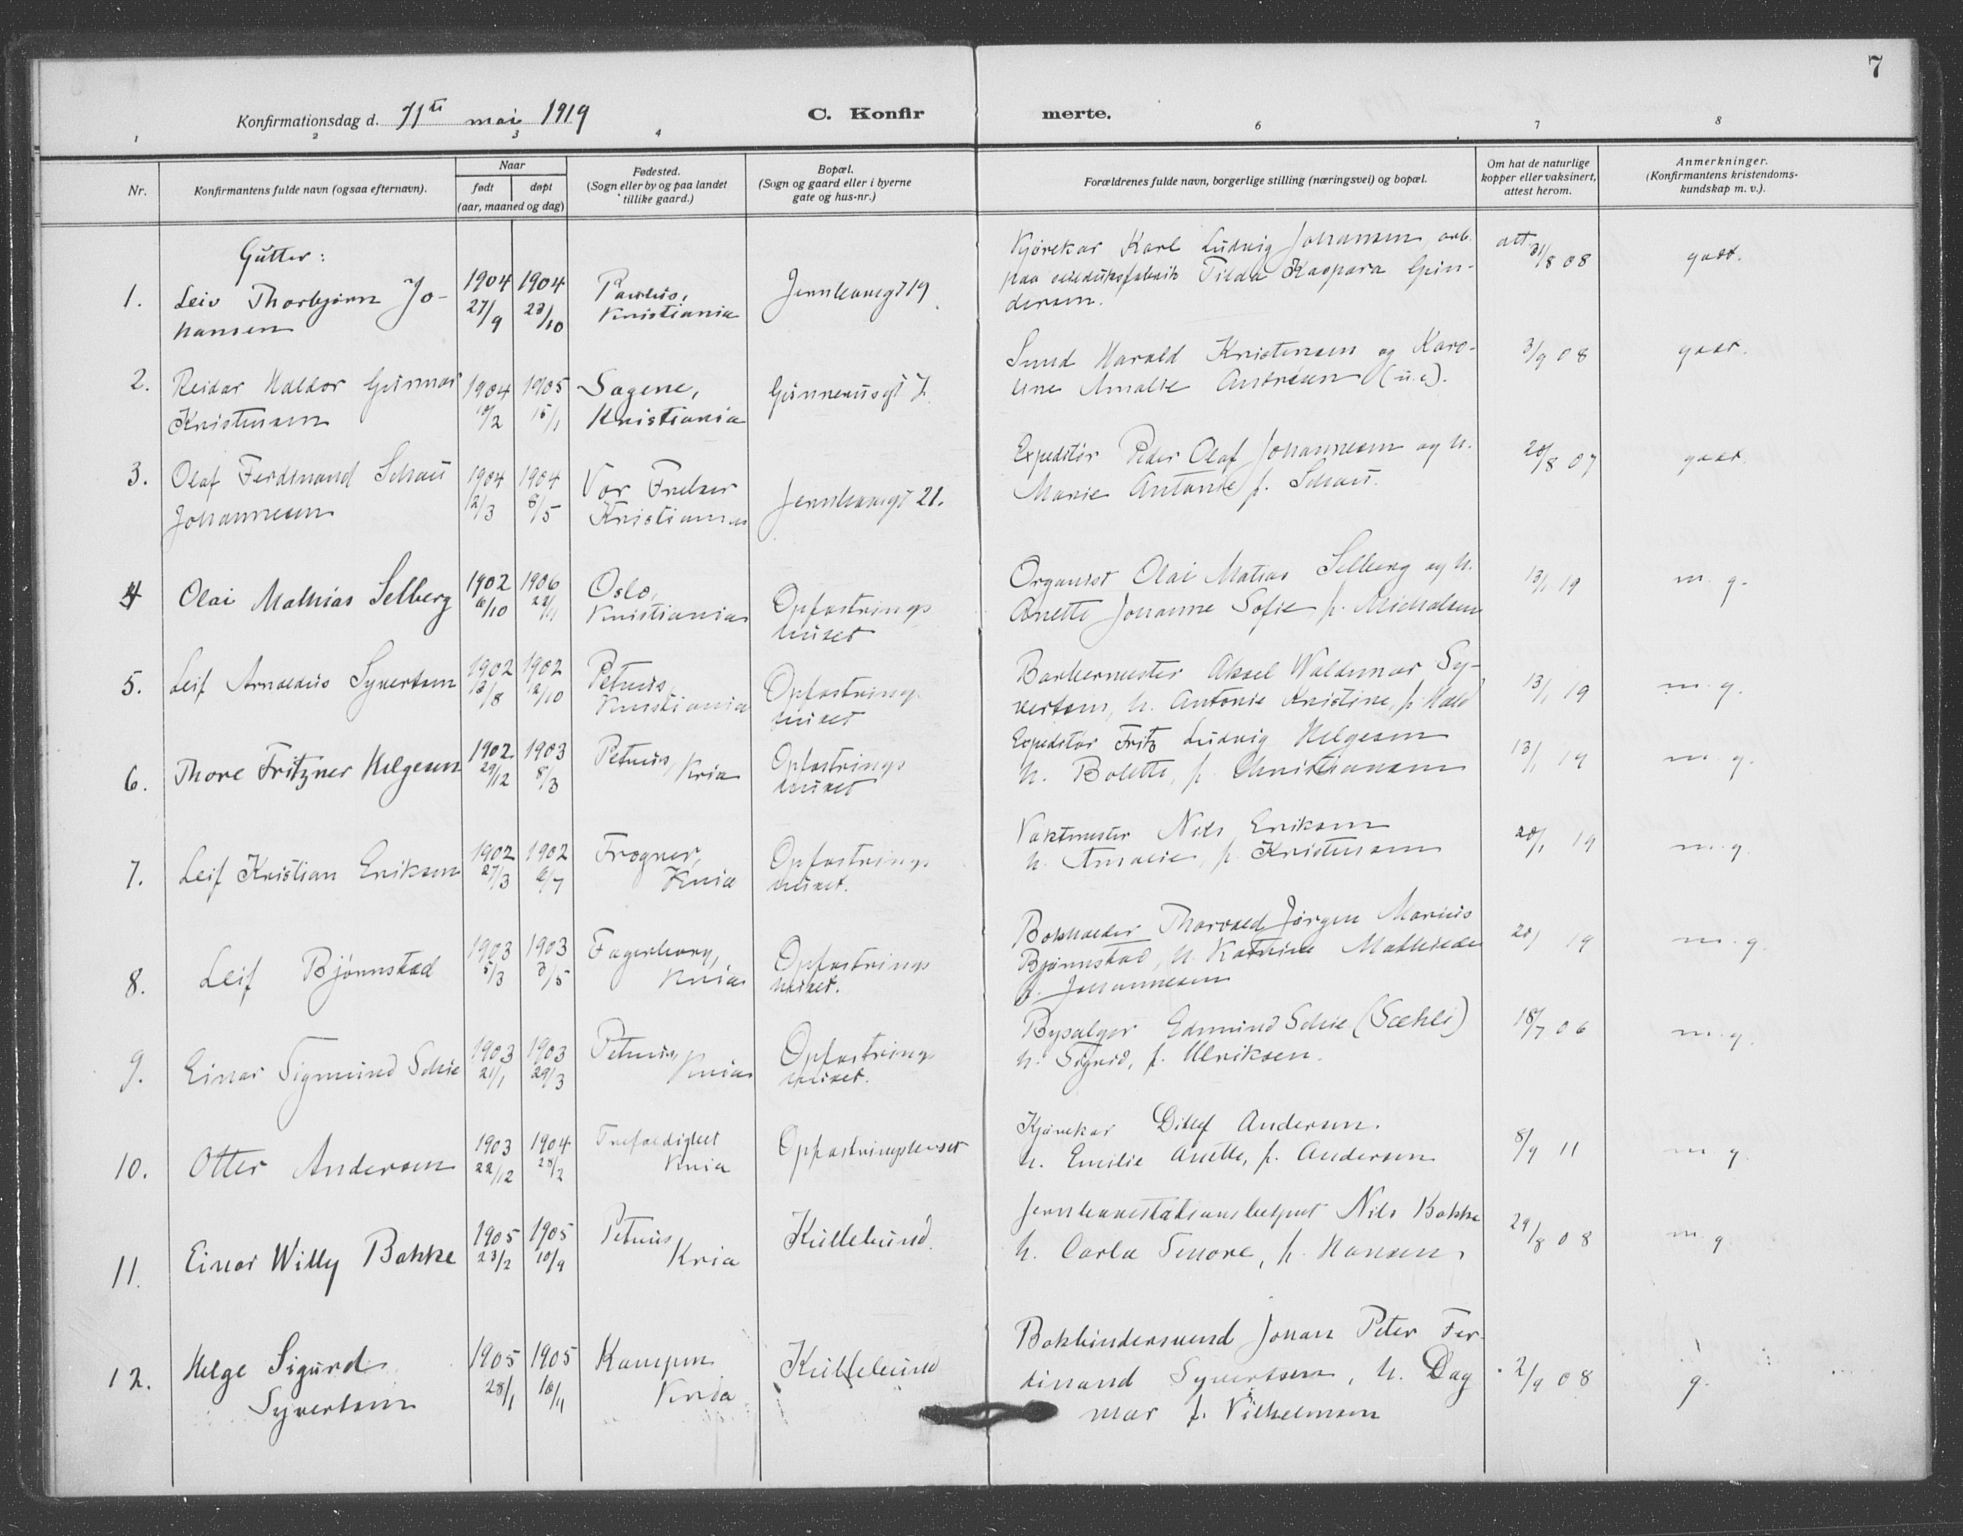 7
Konfirmationsdag d. 11te mai 1919 C. Konfir merte.
1 2 3 4 6 7 8
Nr.
Konfirmantens fulde navn (ogsaa efternavn).
Naar
født døpt
(aar, maaned og dag)
Fødested.
(Sogn eller by og paa landet
tillike gaard.)
Bopæl.
(Sogn og gaard eller i byerne
gate og hus-nr.)
Forældrenes fulde navn, borgerlige stilling (næringsvei) og bopæl.
Om hat de naturlige
kopper eller vaksinert,
attest herom.
Anmerkninger.
(Konfirmantens kristendoms-
kundskap m. v.).
Gutter:
1. Leiv Thorbjørn Jo-
hansen
1904 27/9
1904 23/10
Paulus,
Kristiania
Jernbanegt 19
Kjørekar Karl Ludvig Johansen, arb.
paa Tilda Kaspara Gun-
dersen.
att 31/8 08
godt.
2. Reidar Haldor Gunnar
Kristensen
1904 10/2
1905 15/1
Sagene,
Kristiania
Gunnerusgt 7
Smed Harald Kristensen og Karo-
line Amalie Andresen (u.e).
3/9 08
godt.
3. Olaf Ferdinand Schau
Johannesen
1904 12/3
1904 8/5
Vor Frelser
Kristiania
Jernbanegt 21.
Expeditør Peder Olaf Johannesen og h.
Marie Antonie f. Schau.
20/8 07
godt
4 Olai Mathias Selberg
1902 6/10
1906
Oslo,
Kristiania
Opfostrings
huset
Organist Olai Matias Selberg og h.
Anette Johanne Sofie f. Michalsen
13/1 19
m. g.
5. Leif Arnoldus Syvertsen
1902 13/8
1902 12/10
Petrus,
Kristiania
Opfostrings
huset
Barbermester Aksel Waldemar Sy-
vertsen, h. Antonie Kristine, f. Hald
13/1 19
m. g.
6. Thore Fritzner Helgesen
1902 29/12
1903 8/3
Petrus, Kria
Opfostrings
huset
Expeditør Fritz Ludvig Helgesen
h. Bolette, f. Christiansen
13/1 19
m. g.
7. Leif Kristian Eriksen
1902 27/3
1902 6/7
Frogner,
Kria
Opfostrings
huset.
Vaktmester Nils Eriksen
h. Amalie, f. Kristensen
20/1 19
m. g.
8. Leif Bjørnstad
1903 5/3
1903 3/5
Fagerborg,
Kria
Opfostrings
huset.
Bokholder Thorvald Jørgen Marius
Bjørnstad, h. Katrine Mathilde
f. Johannesen
20/ 19
m. g.
9. Einar Sigmund Schie
1903 21/1
1903 29/3
Petrus,
Kria
Opfostrings
huset.
Bysælger Edmund Schie (Sæhli)
h. Sigrid, f. Ulriksen.
18/7 06
m. g.
10. Otter Andersen
1903 22/12
1904 28/2
Trefoldighet
Kria
Opfostringshuset
Kjørekar Ditlef Andersen.
h. Emilie Anette, f. Andersen
8/9 11
m. g.
11. Einar Willy Bakke
1905 23/2
1905 10/9
Petrus
Kria
Kullebund.
Jernbanestationsbetjent Nils Bakke
h. Carla Tenore, f. Hansen.
29/8 08
m. g.
12. Helge Sigurd
Syvertsen
1905 28/1
1905 16/11
Kampen
Kria
Kullebund
Bokbindersvend Johan Peter Fer-
dinand Syvertsen, h. Dag
mar f. Vilhelmsen
2/9 08
g.